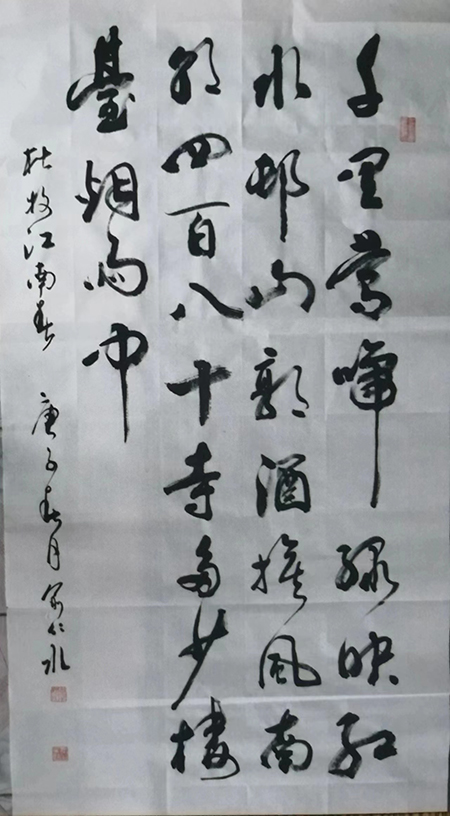 千里莺啼绿映红
水邨山郭酒旗風南
朝四百八十寺多少樓
臺烟雨中
杜牧江南春 庚子春月 仁水